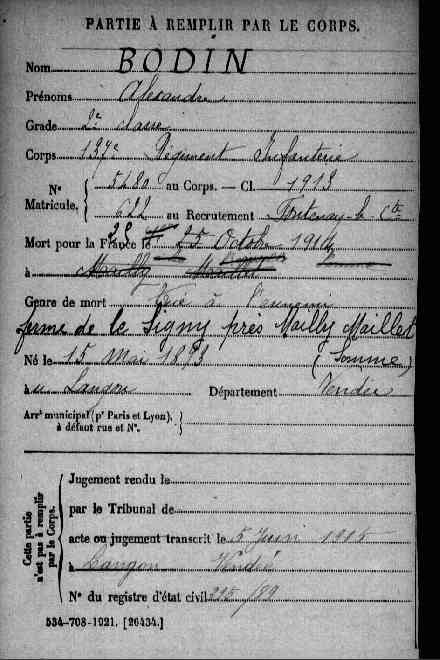 PARTIE À REMPLIR PAR LE CORPS.
Nom BODIN
Prénoms Alexandre
Grade 2e classe
Corps 137e Régiment Infanterie
N° Matricule. 5480 au Corps. — Cl. 1913
622 au Recrutement Fontenay-le-Cte
Mort pour la France le 25 Octobre 1914
à Mailly Maillet Somme
Genre de mort Tué à l'ennemi
ferme de le Signy près Mailly Maillet
(Somme)
Né le 15 Mai 1893
au Langon Département Vendée
Arrt municipal (pr Paris et Lyon), à défaut rue et N°.
Cette partie n'est pas à remplir par le Corps.
Jugement rendu le
par le Tribunal de
acte ou jugement transcrit le 5 Juin 1915
à Langon Vendée
N° du registre d'état civil 215/89
534-708-1921. [26434.]